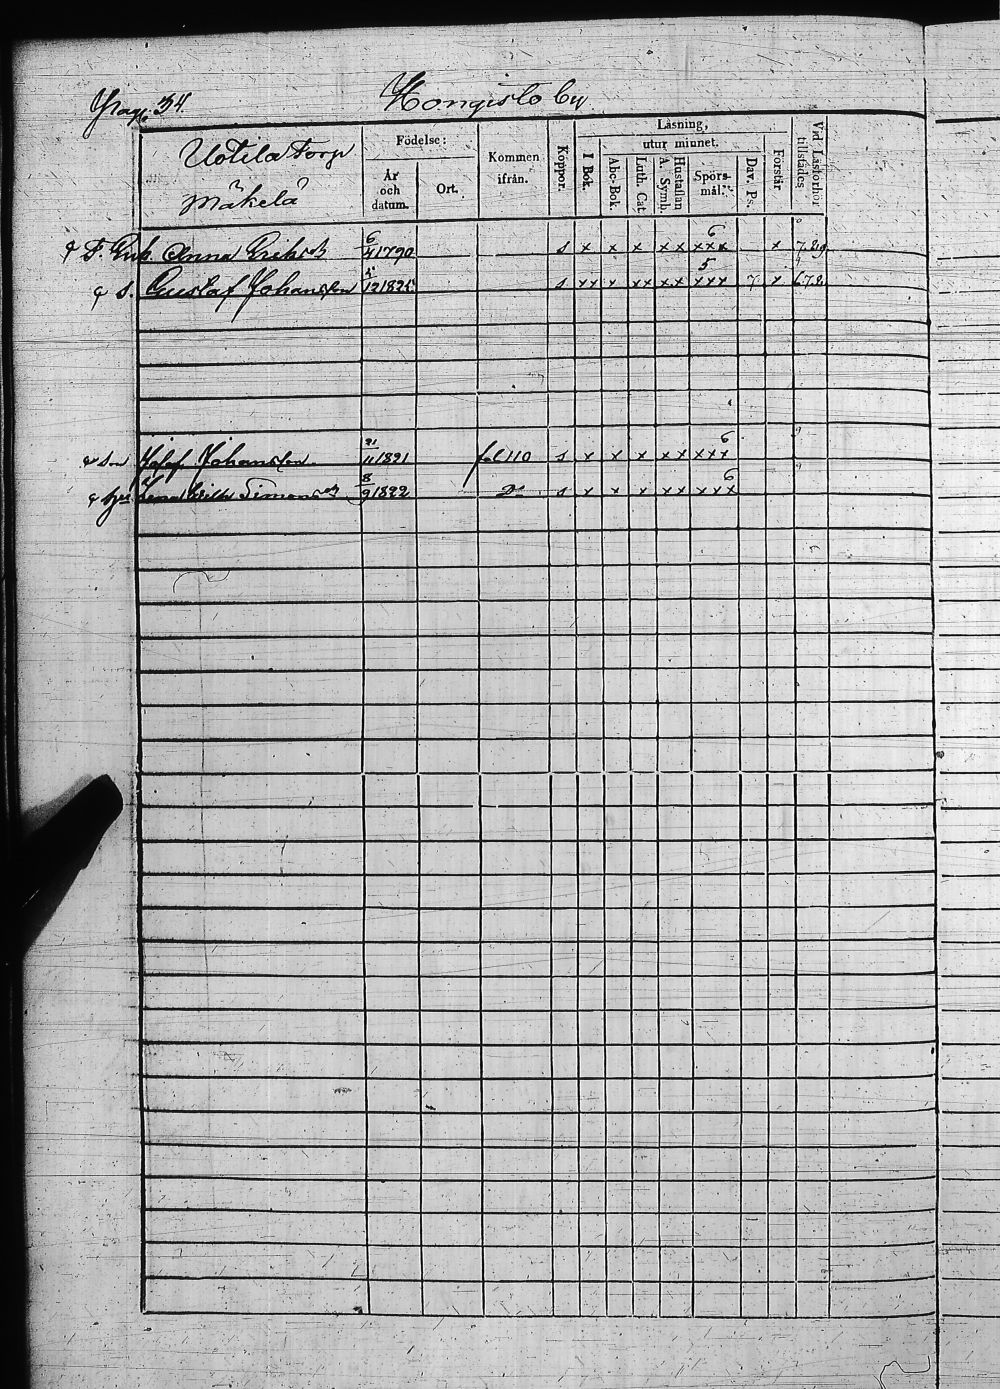 Pag. 34. Hongisto by
Uotila torp
Mäkelä
Födelse:
År och datum.
Ort.
Kommen ifrån.
Koppor.
Läsning,
I Bok.
utur minnet.
Abc-Bok.
Luth. Cat.
Hustaflan A. Symb.
Spörs-mål.
Dav. Ps.
Förstår
Vid Läsförhör tillstädes
Anna 6/4 1790 s x x x x x 6 x x x x 7.8.9
s. Gustaf Johansson 12 1825 s x x x x x x x 5 x x x 7 x 6.7.8.
Son Johansson 21/11 1821 fol 110 s x x x x x 6 x x x 9
Simons 8/9 1822 Do s x x x x x 6 x x x 9